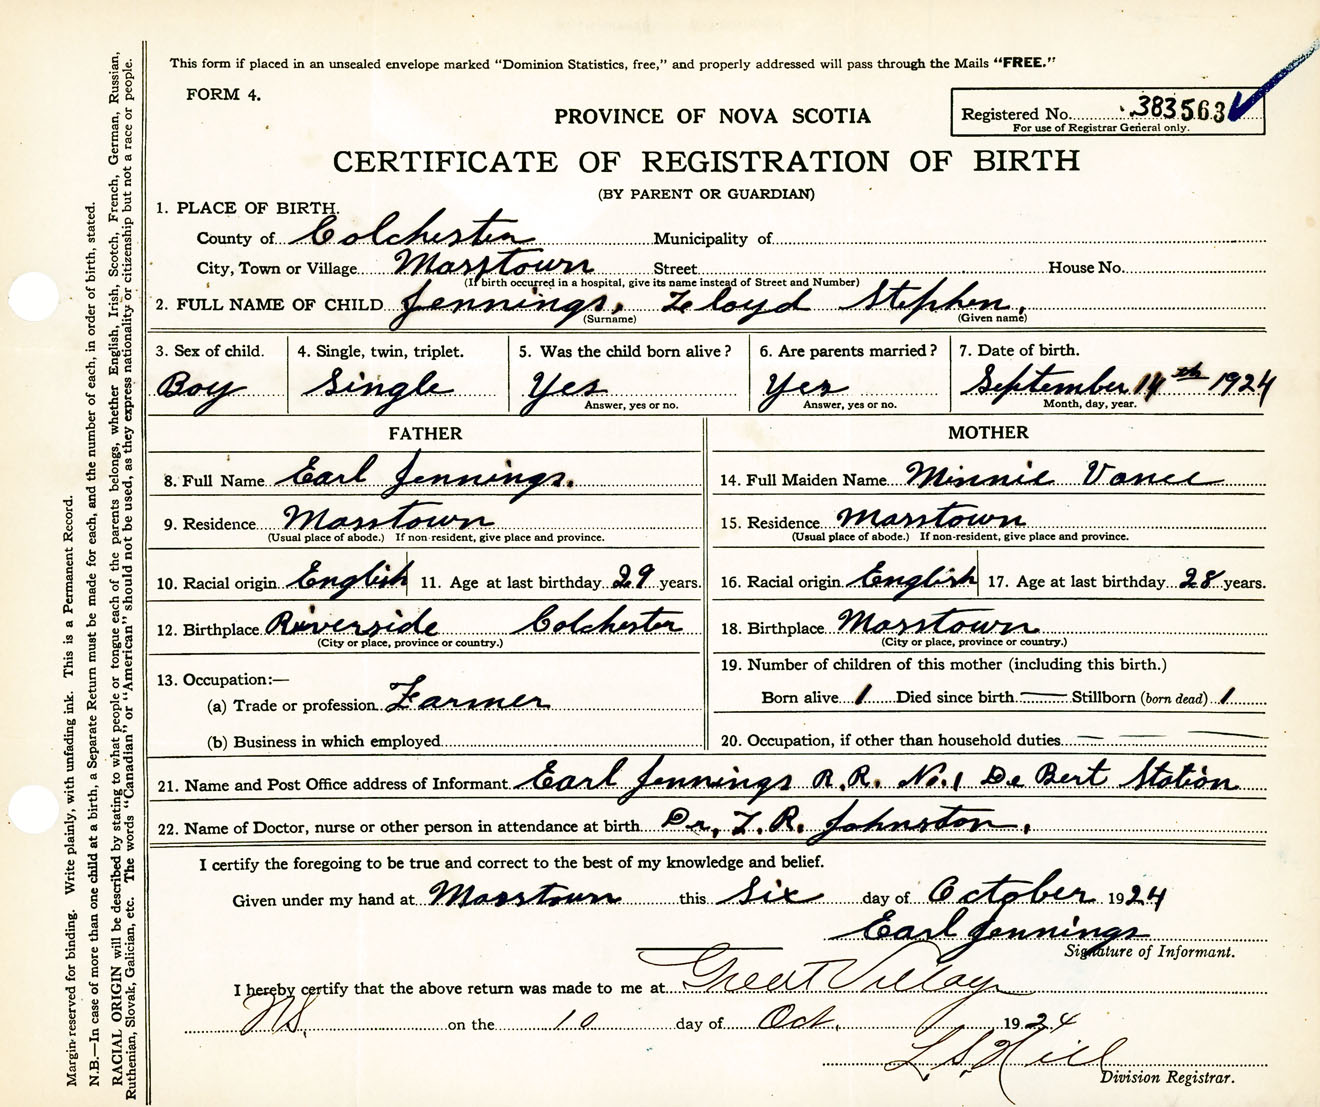 This form if placed in an unsealed envelope marked "Dominion Statistics, free," and properly addressed will pass through the Mails "FREE."
FORM 4.
PROVINCE OF NOVA SCOTIA
Registered No. 383563
For use of Registrar General only.
CERTIFICATE OF REGISTRATION OF BIRTH
(BY PARENT OR GUARDIAN)
1. PLACE OF BIRTH.
County of Colchester Municipality of
City, Town or Village Masstown Street House No.
(If birth occurred in a hospital, give its name instead of Street and Number)
2. FULL NAME OF CHILD Jennings, Lloyd Stephen,
(Surname) (Given name)
3. Sex of child. 4. Single, twin, triplet. 5. Was the child born alive? 6. Are parents married? 7. Date of birth.
Boy Single Yes Yes September 14th 1924
Answer, yes or no. Answer, yes or no. Month, day, year.
FATHER MOTHER
8. Full Name Earl Jennings. 14. Full Maiden Name Minnie Vance
9. Residence Masstown 15. Residence Masstown
(Usual place of abode.) If non-resident, give place and province. (Usual place of abode.) If non-resident, give place and province.
10. Racial origin English 11. Age at last birthday 29 years. 16. Racial origin English 17. Age at last birthday 28 years.
12. Birthplace Riverside Colchester 18. Birthplace Masstown
(City or place, province or country.) (City or place, province or country.)
13. Occupation:— 19. Number of children of this mother (including this birth.)
(a) Trade or profession Farmer Born alive 1 Died since birth — Stillborn (born dead) 1
(b) Business in which employed 20. Occupation, if other than household duties — —
21. Name and Post Office address of Informant Earl Jennings R.R. No.1 De Bert Station
22. Name of Doctor, nurse or other person in attendance at birth Dr. T. R. Johnston.
I certify the foregoing to be true and correct to the best of my knowledge and belief.
Given under my hand at Masstown this Six day of October 1924
Earl Jennings
Signature of Informant.
I hereby certify that the above return was made to me at Great Village
NS. on the 10 day of Oct. 1924
L. S. Hill
Division Registrar.
Margin reserved for binding. Write plainly, with unfading ink. This is a Permanent Record.
N.B.—In case of more than one child at a birth, a Separate Return must be made for each, and the number of each, in order of birth, stated.
RACIAL ORIGIN will be described by stating to what people or tongue each of the parents belongs, whether English, Irish, Scotch, French, German, Russian,
Ruthenian, Slovak, Galician, etc. The words "Canadian" or "American" should not be used, as they express nationality or citizenship but not a race or people.